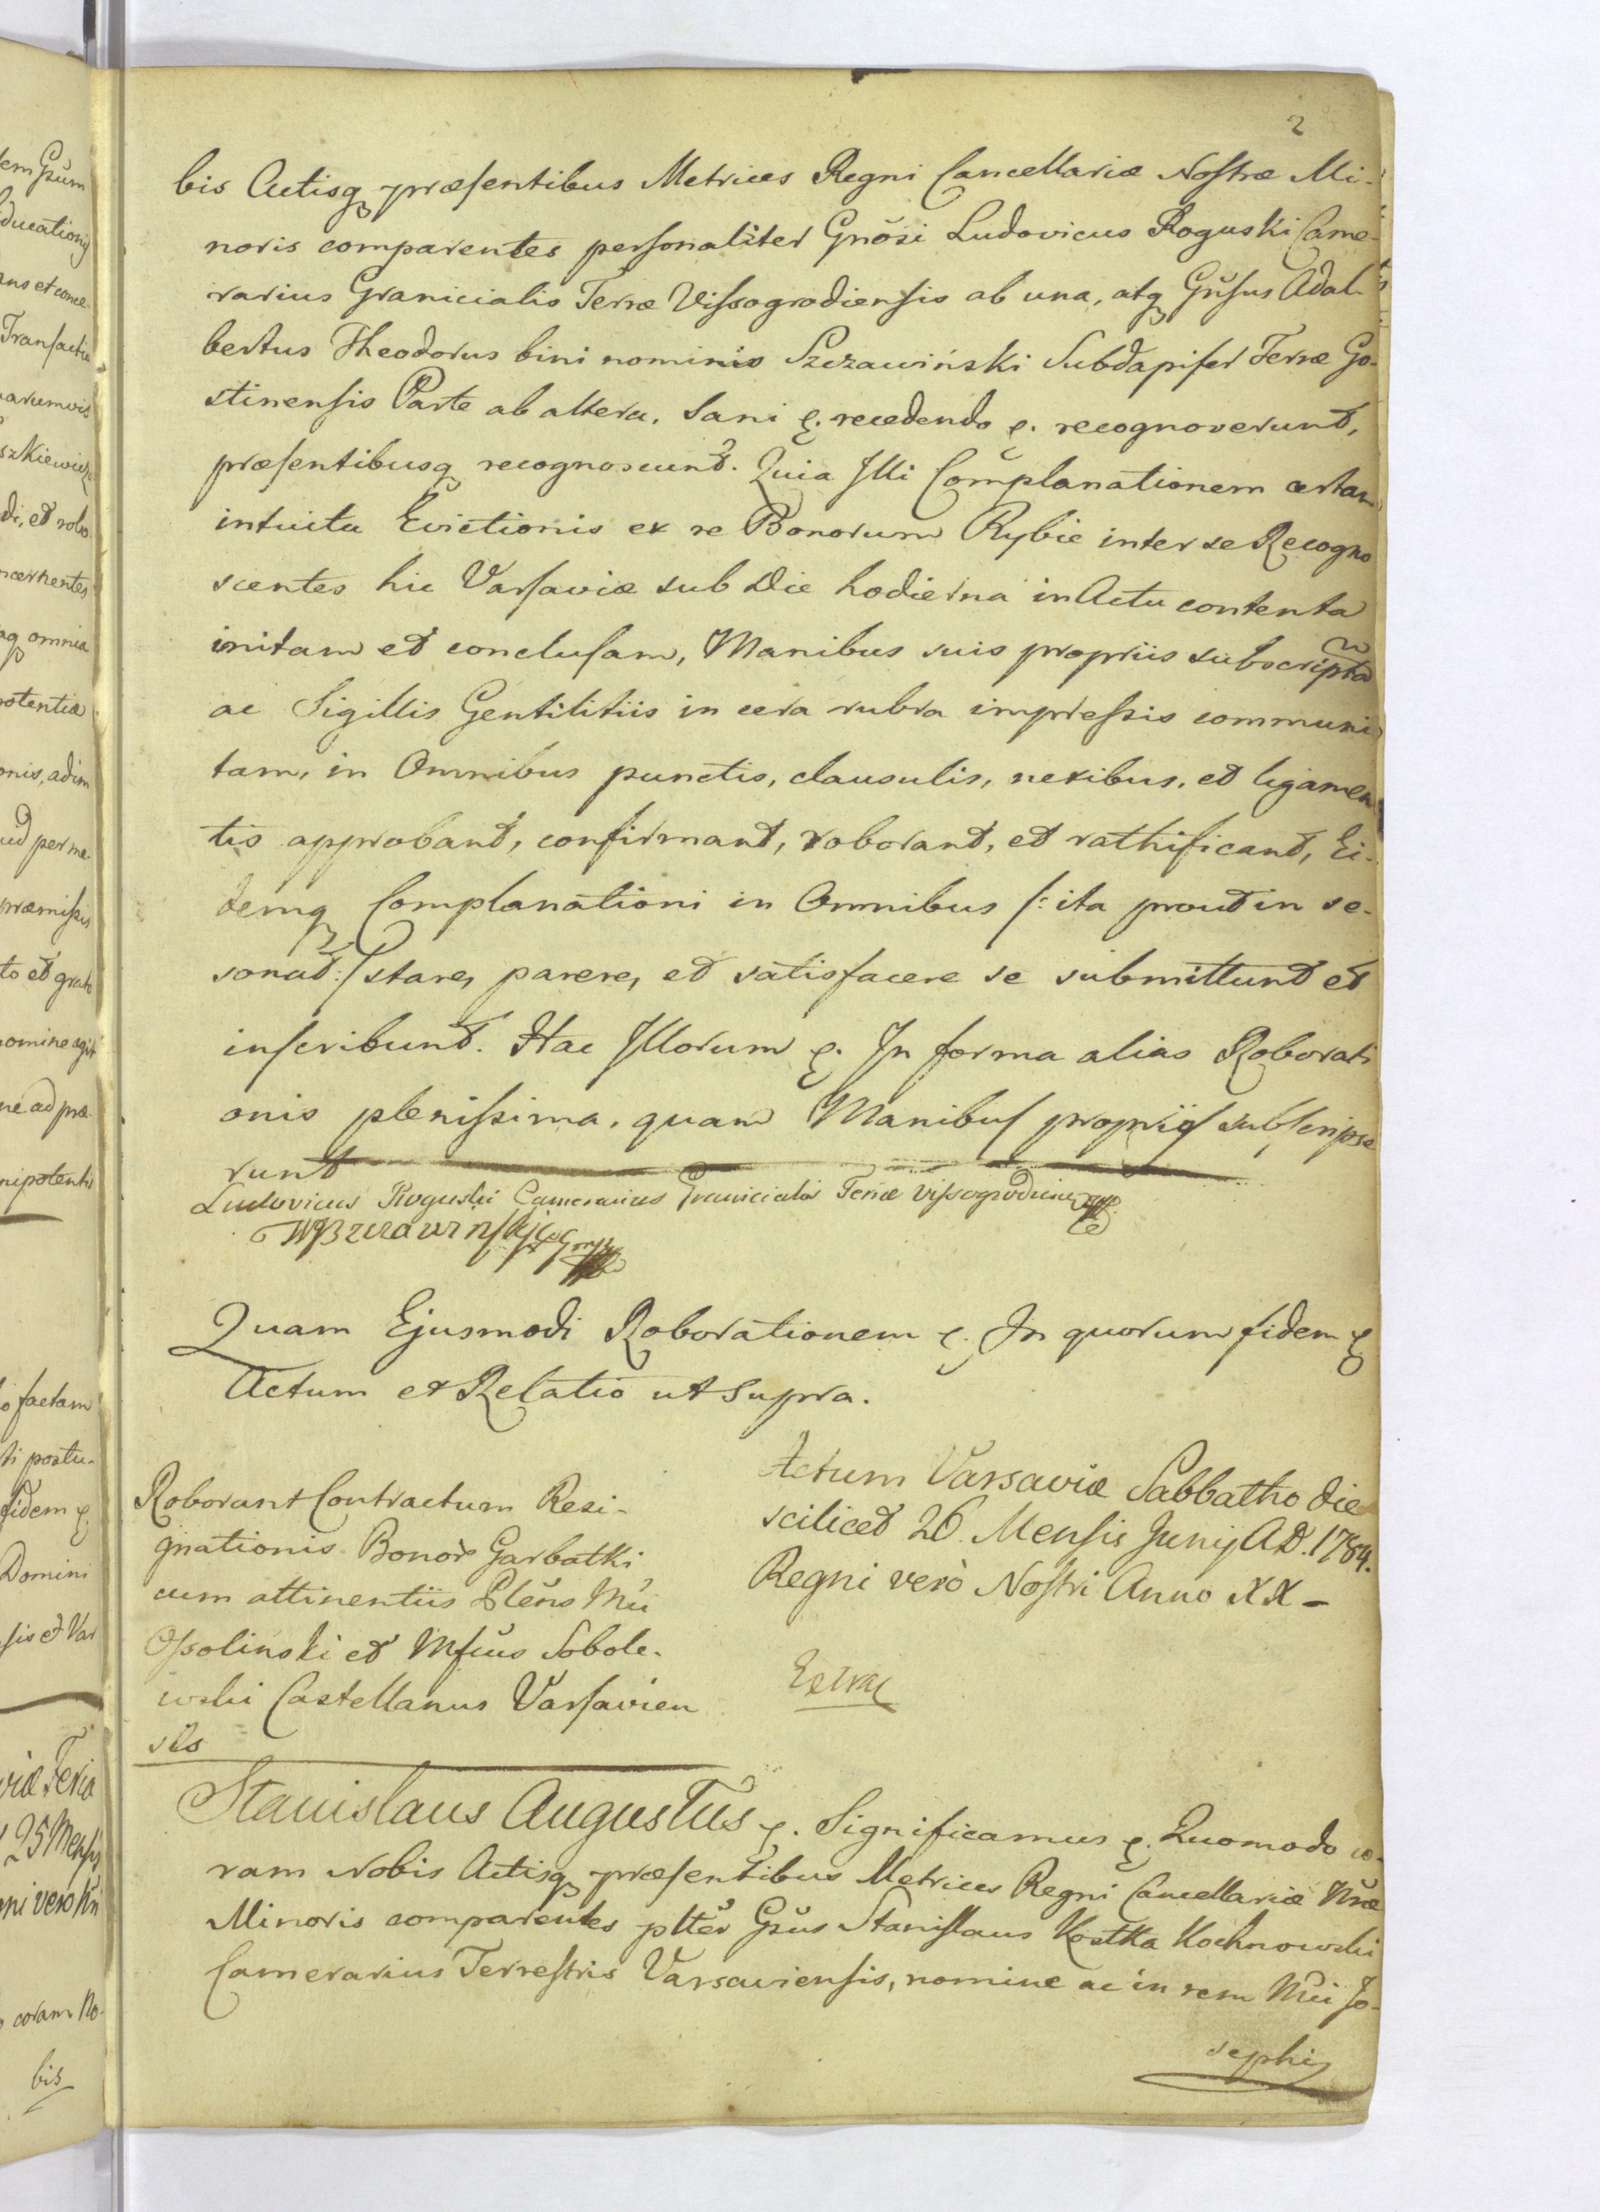 2
bis Actisq præsentibus Metrices Regni Cancellariæ Nostræ Mi-
noris comparentes personaliter Gnŏsi Ludovicus Roguski Came-
rarius Granicialis Terræ Vissogrodiensis ab una, atq Gňsus Adal-
bertus Theodorus bini nominis Szczawiński Subdapifer Terræ Go-
stinensis Parte ab altera, Sani recedendo recognoverunt,
præsentibusq recognoscunt. Quia Illi Complanationem certam
intuitu Evictionis ex re Bonorum Rybie inter se Recogno
scentes hic Varsaviæ sub Die hodierna in Actu contenta
initam et conclusam, Manibus suis propriis subscripta
ac Sigillis Gentilitiis in cera rubra impressis communi
tam, in Omnibus punctis, clausulis, nexibus, et ligamen
tis approbant, confirmant, roborant, et rathificant, Ei-
demq Complanationi in Omnibus /: ita prout in se-
sonat :/ stare, parere, et satisfacere se submittunt et
inscribunt. Hac Illorum In forma alias Roborati
onis plenissima, quam Manibus propriis subscripse
runt
Ludovicus Roguski Camerarius Granicialis Terræ Vissogrodiensis
Quam Ejusmodi Roborationem In quorum fidem
Actum et Relatio ut Supra.
Roborant Contractum Resi-
gnationis Bonor Garbatki
cum attinentiis Plĕns Mŭi
Ossolinski et Mfcus Sobole-
wski Castellanus Varsavien
sis
Actum Varsaviæ Sabbatho die
scilicet 26 Mensis Junij A.D. 1784.
Regni verò Nostri Anno XX -
Stanislaus Augustus Significamus Quomodo co-
ram Nobis Actisq præsentibus Metrices Regni Cancellariæ Nræ
Minoris comparentes plter Gsŭs Stanislaus Kostka Kochnowski
Camerarius Terrestris Varsaviensis, nomine ac in rem Mŭi Jo-
sephi